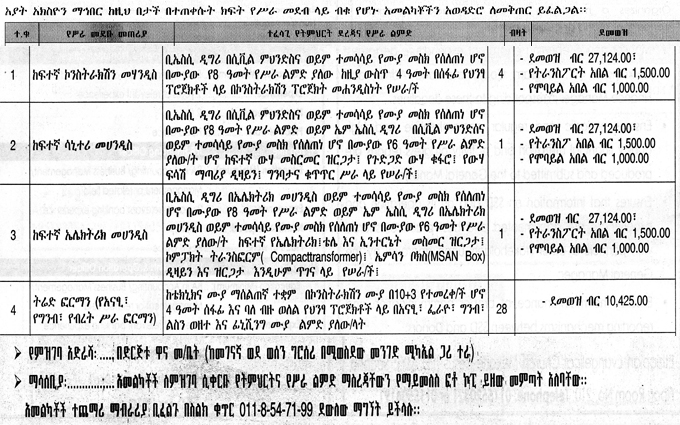 አያት አክስዮን ማኅበር ከዚህ በታች በተጠቀሱት ክፍት የሥራ መደብ ላይ ብቁ የሆኑ አመልካቾችን አወዳድሮ ለመቅጠር ይፈልጋል።
ተ.ቁ የሥራ መደቡ መጠሪያ ተፈላጊ የትምህርት ደረጃና የሥራ ልምድ ብዛት ደመወዝ
1 ከፍተኛ ኮንስትራክሽን መሃንዲስ
ቢኤስሲ ዲግሪ በሲቪል ምህንድስና ወይም ተመሳሳይ የሙያ መስክ የሰለጠነ ሆኖ
በሙያው የ8 ዓመት የሥራ ልምድ ያለው ከዚያ ውስጥ 4 ዓመት በሰፋፊ የህንፃ
ፕሮጀክቶች ላይ በኮንስትራክሽን ፕሮጀክት መሐንዲስነት የሠራ/ች
4
- ደመወዝ ብር 27,124.00፣
- የትራንስፖርት አበል ብር 1,500.00
- የሞባይል አበል ብር 1,000.00
2 ከፍተኛ ሳኒተሪ መሀንዲስ
ቢኤስሲ ዲግሪ በሲቪል ምህንድስና ወይም ተመሳሳይ የሙያ መስክ የሰለጠነ ሆኖ
በሙያው የ8 ዓመት የሥራ ልምድ ወይም ኤም ኤስሲ ዲግሪ በሲቪል ምህንድስና
ወይም ተመሳሳይ መስክ የሰለጠነ ሆኖ በሙያው የ6 ዓመት የሥራ ልምድ
ያለው/ት ሆኖ ከፍተኛ ውሃ መስርመር ዝርጋታ፤ የጉድጋድ ውሃ ቁፋሮ፤ የውሃ
ፍሳሽ ማጣሪያ ዲዛይን፤ ግንባታና ቁጥጥር ሥራ ላይ የሠራ/ች፤
1
- ደመወዝ ብር 27,124.00፣
- የትራንስፖ አበል ብር 1,500.00
- የሞባይል አበል ብር 1,000.00
3 ከፍተኛ ኤሌክትሪክ መሀንዲስ
ቢኤስሲ ዲግሪ በኤሌክትሪክ መሀንዲስ ወይም ተመሳሳይ የሙያ መስክ የሰለጠነ
ሆኖ በሙያው የ8 ዓመት የሥራ ልምድ ወይም ኤም ኤስሲ ዲግሪ በኤሌክትሪክ
መሀንዲስ ወይም ተመሳሳይ መስክ የሰለጠነ ሆኖ በሙያው የ6 ዓመት የሥራ
ልምድ ያለው/ት ከፍተኛ የኤሌክትሪክ፤ቴሌ እና ኢንተርኔት መስመር ዝርጋታ፤
ኮምፓክት ትራንስፎርም( Compacttransformer)፤ ኤምሳን ቦክስ(MSAN Box)
ዲዛይን እና ዝርጋታ እንዲሁም ጥገና ላይ የሠራ/ች፤
1
- ደመወዝ ብር 27,124.00፣
- የትራንስፖርት አበል ብር 1,500.00
- የሞባይል አበል ብር 1,000.00
4 ትሬድ ፎርማን (የአናፂ፣
የግንብ፣ የብረት ሥራ ፎርማን)
ከቴክኒክና ሙያ ማሰልጠኛ ተቋም በኮንስትራክሽን ሙያ በ10+3 የተመረቀ/ች ሆኖ
4 ዓመት ሰፋፊ እና ባለ ብዙ ወለል የህንፃ ፕሮጀክቶች ላይ በአናፂ፣ ፌራዮ፣ ግንብ፣
ልስን ወዘተ እና ፊኒሺንግ ሙያ ልምድ ያለው/ላት
28
- ደመወዝ ብር 10,425.00
➤ የምዝገባ አድራሻ፡....፡ በድርጅቱ ዋና መ/ቤት (ከመገናኛ ወደ ወሰን ገርስሪ በሚወስደው መንገድ ሚካኤል ጋሪ ተራ)
➤ ማሳሰቢያ፡..........፡ አመልካቾች ለምዝገባ ሲቀርቡ የትምህርትና የሥራ ልምድ ማስረጃቸውን የማይመለስ ፎቶ ኮፒ ይዘው መምጣት አለባቸው፡፡
አመልካቾች ተጨማሪ ማብራሪያ ቢፈልጉ በስልክ ቁጥር 011-8-54-71-99 ደውለው ማግኘት ይችላሉ፡፡